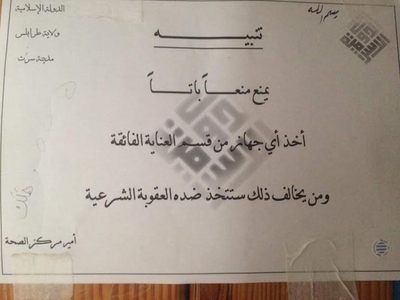 بسم الله
الدولة الإسلامية
ولاية طرابلس
مدينة سرت
تنبيـــه
يمنع منعـــاً باتـــاً
أخذ أي جهاز من قسم العناية الفائقة
ومن يخالف ذلك ستتخذ ضده العقوبة الشرعية
أمير مركز الصحة